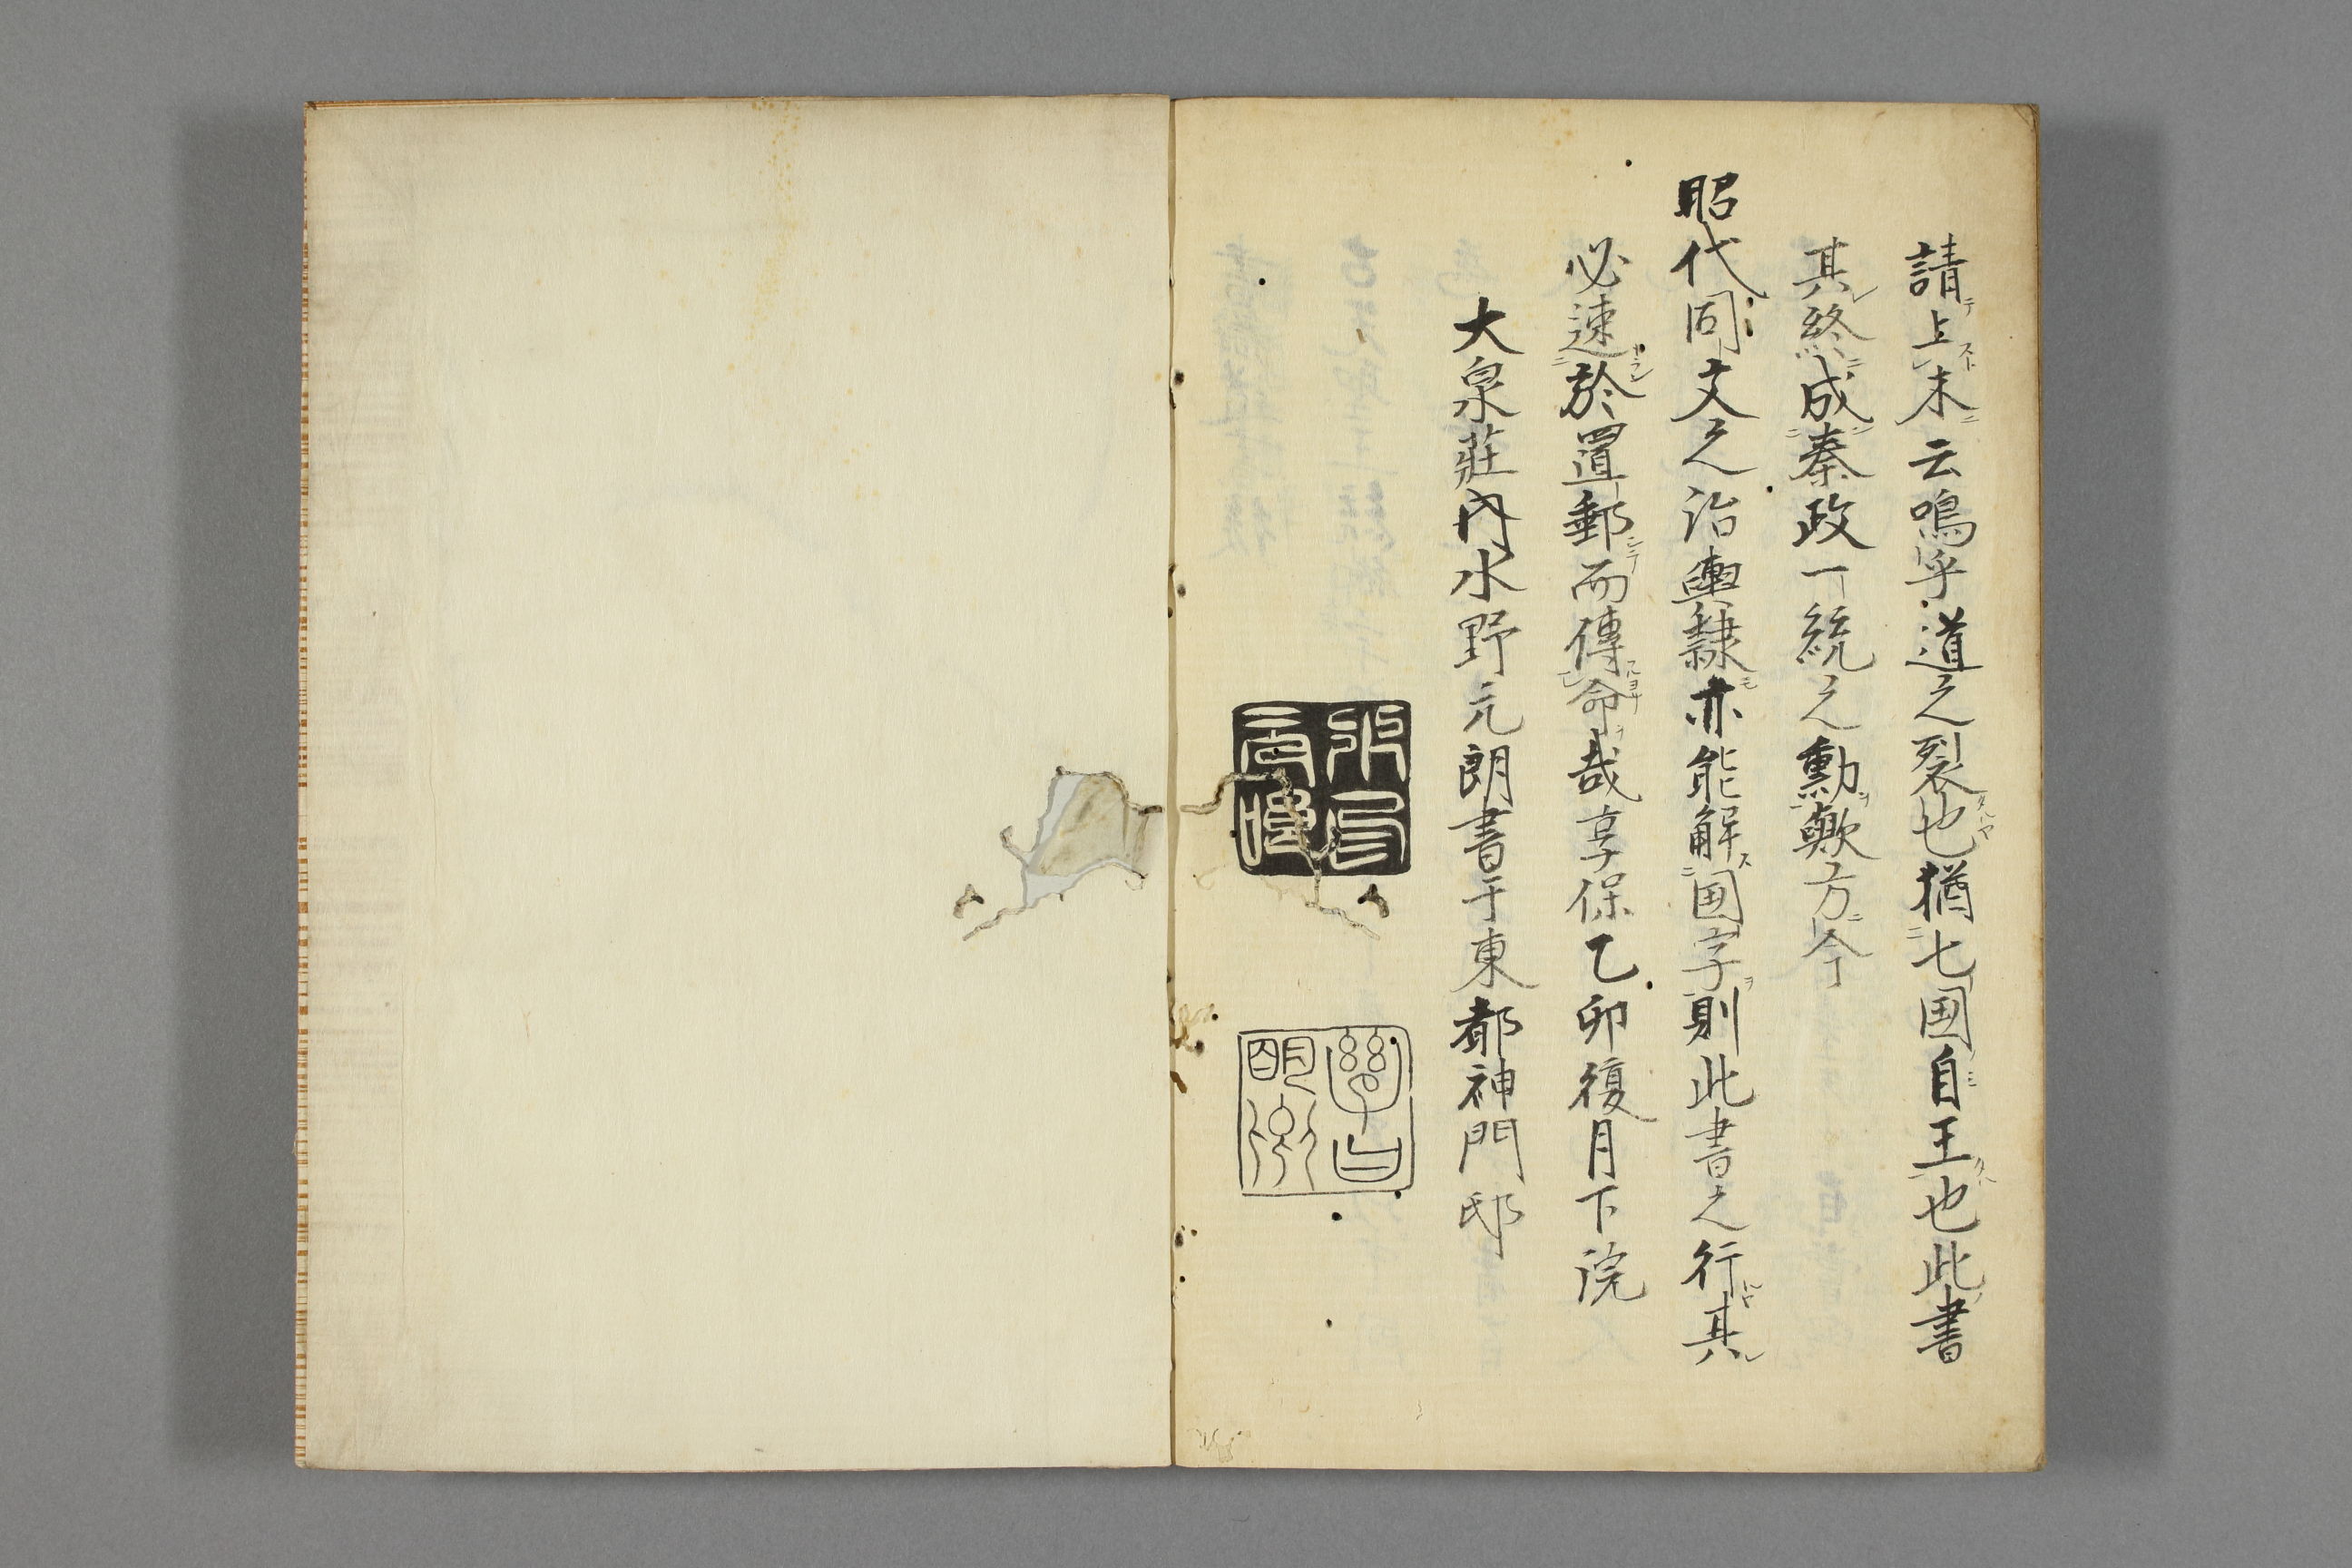 請上末云鳴乎道之裂也猶七国自王也此書
其終成秦政一統之勳歟方今
昭代同文之治輿隸亦能解国字則此書之行其
必速於置郵而傳命哉享保乙卯復月下浣
大泉莊内水野元朗書于東都神門邸